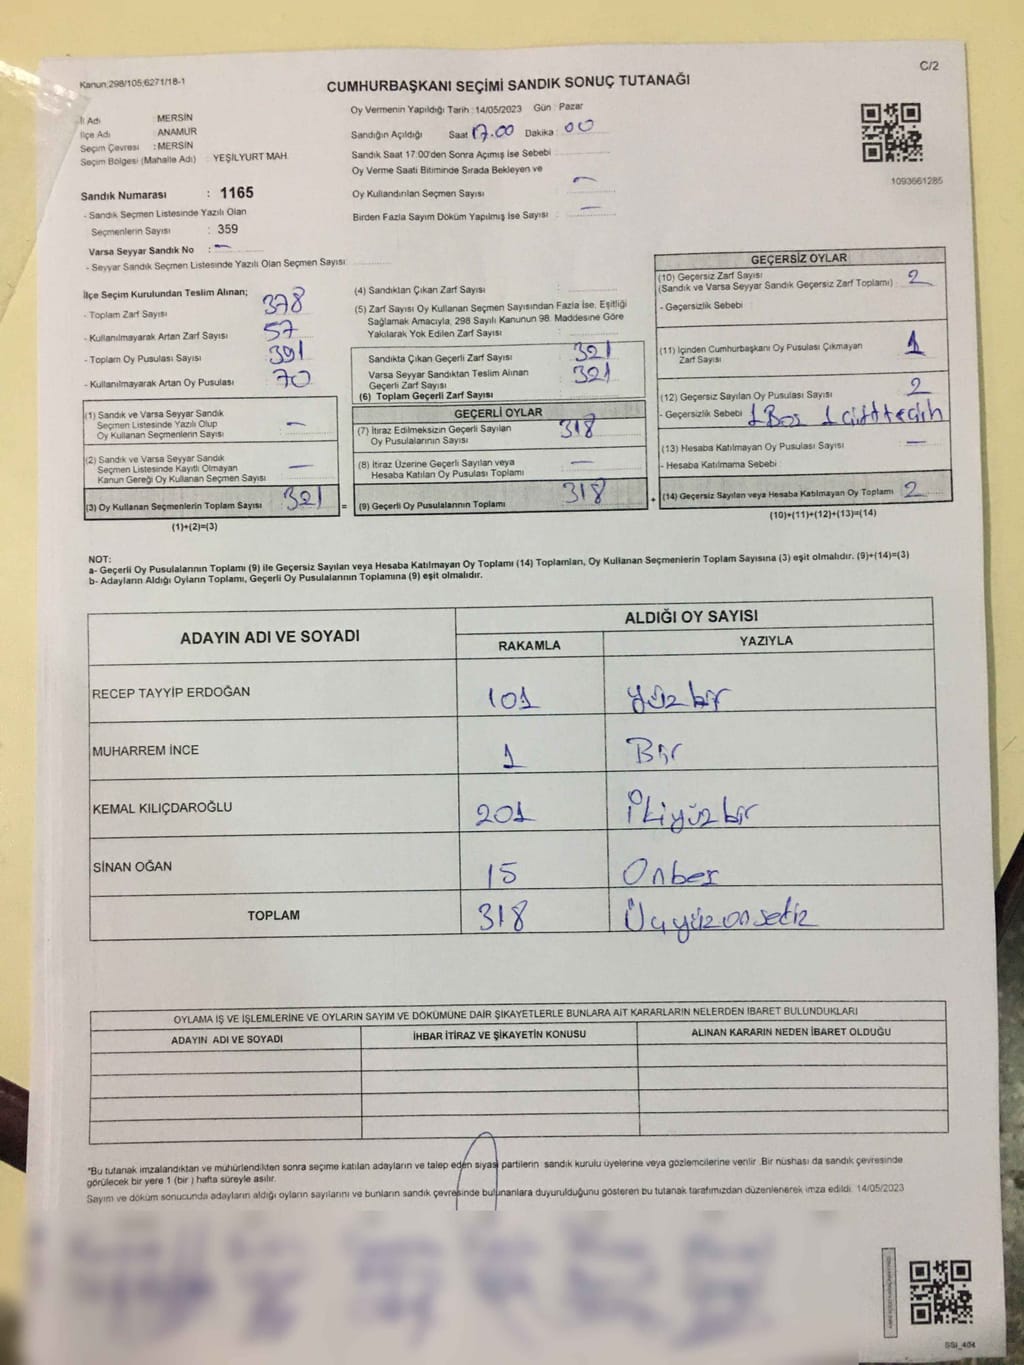 C/2
Kanun:298/105;6271/18-1
CUMHURBAŞKANI SEÇİMİ SANDIK SONUÇ TUTANAĞI
İl Adı MERSİN
İlçe Adı ANAMUR
Seçim Çevresi : MERSİN
Seçim Bölgesi (Mahalle Adı) : YEŞİLYURT MAH.
Oy Vermenin Yapıldığı Tarih : 14/05/2023 Gün : Pazar
Sandığın Açıldığı Saat 17.00 Dakika : 00
Sandık Saat 17:00'den Sonra Açımış İse Sebebi
Oy Verme Saati Bitiminde Sırada Bekleyen ve
Oy Kullandırılan Seçmen Sayısı —
Birden Fazla Sayım Döküm Yapılmış İse Sayısı —
1093661285
Sandık Numarası : 1165
- Sandık Seçmen Listesinde Yazılı Olan
Seçmenlerin Sayısı : 359
Varsa Seyyar Sandık No : —
- Seyyar Sandık Seçmen Listesinde Yazılı Olan Seçmen Sayısı
İlçe Seçim Kurulundan Teslim Alınan;
- Toplam Zarf Sayısı 378
- Kullanılmayarak Artan Zarf Sayısı 57
- Toplam Oy Pusulası Sayısı 391
- Kullanılmayarak Artan Oy Pusulası 70
(1) Sandık ve Varsa Seyyar Sandık
Seçmen Listesinde Yazılı Olup
Oy Kullanan Seçmenlerin Sayısı —
(2) Sandık ve Varsa Seyyar Sandık
Seçmen Listesinde Kayıtlı Olmayan
Kanun Gereği Oy Kullanan Seçmen Sayısı —
(3) Oy Kullanan Seçmenlerin Toplam Sayısı 321 =
(1)+(2)=(3)
(4) Sandıktan Çıkan Zarf Sayısı
(5) Zarf Sayısı Oy Kullanan Seçmen Sayısından Fazla İse, Eşitliği
Sağlamak Amacıyla, 298 Sayılı Kanunun 98. Maddesine Göre
Yakılarak Yok Edilen Zarf Sayısı
Sandıkta Çıkan Geçerli Zarf Sayısı 321
Varsa Seyyar Sandıktan Teslim Alınan
Geçerli Zarf Sayısı 321
(6) Toplam Geçerli Zarf Sayısı
GEÇERLİ OYLAR
(7) İtiraz Edilmeksizin Geçerli Sayılan
Oy Pusulalarının Sayısı 318
(8) İtiraz Üzerine Geçerli Sayılan veya
Hesaba Katılan Oy Pusulası Toplamı —
(9) Geçerli Oy Pusulalarının Toplamı 318 +
GEÇERSİZ OYLAR
(10) Geçersiz Zarf Sayısı
(Sandık ve Varsa Seyyar Sandık Geçersiz Zarf Toplamı) 2
- Geçersizlik Sebebi
(11) İçinden Cumhurbaşkanı Oy Pusulası Çıkmayan
Zarf Sayısı 1
(12) Geçersiz Sayılan Oy Pusulası Sayısı 2
- Geçersizlik Sebebi 1 Boş 1 çift tercih
(13) Hesaba Katılmayan Oy Pusulası Sayısı —
- Hesaba Katılmama Sebebi
(14) Geçersiz Sayılan veya Hesaba Katılmayan Oy Toplamı 2
(10)+(11)+(12)+(13)=(14)
NOT:
a- Geçerli Oy Pusulalarının Toplamı (9) ile Geçersiz Sayılan veya Hesaba Katılmayan Oy Toplamı (14) Toplamları, Oy Kullanan Seçmenlerin Toplam Sayısına (3) eşit olmalıdır. (9)+(14)=(3)
b- Adayların Aldığı Oyların Toplamı, Geçerli Oy Pusulalarının Toplamına (9) eşit olmalıdır.
ADAYIN ADI VE SOYADI
ALDIĞI OY SAYISI
RAKAMLA YAZIYLA
RECEP TAYYİP ERDOĞAN 101 yüz bir
MUHARREM İNCE 1 Bir
KEMAL KILIÇDAROĞLU 201 İkiyüz bir
SİNAN OĞAN 15 Onbeş
TOPLAM 318 Üçyüz onsekiz
OYLAMA İŞ VE İŞLEMLERİNE VE OYLARIN SAYIM VE DÖKÜMÜNE DAİR ŞİKAYETLERLE BUNLARA AİT KARARLARIN NELERDEN İBARET BULUNDUKLARI
ADAYIN ADI VE SOYADI İHBAR İTİRAZ VE ŞİKAYETİN KONUSU ALINAN KARARIN NEDEN İBARET OLDUĞU
*Bu tutanak imzalandıktan ve mühürlendikten sonra seçime katılan adayların ve talep eden siyasi partilerin sandık kurulu üyelerine veya gözlemcilerine verilir. Bir nüshası da sandık çevresinde
görülecek bir yere 1 (bir ) hafta süreyle asılır.
Sayım ve döküm sonucunda adayların aldığı oyların sayılarını ve bunların sandık çevresinde bulunanlara duyurulduğunu gösteren bu tutanak tarafımızdan düzenlenerek imza edildi. 14/05/2023
SSI_404